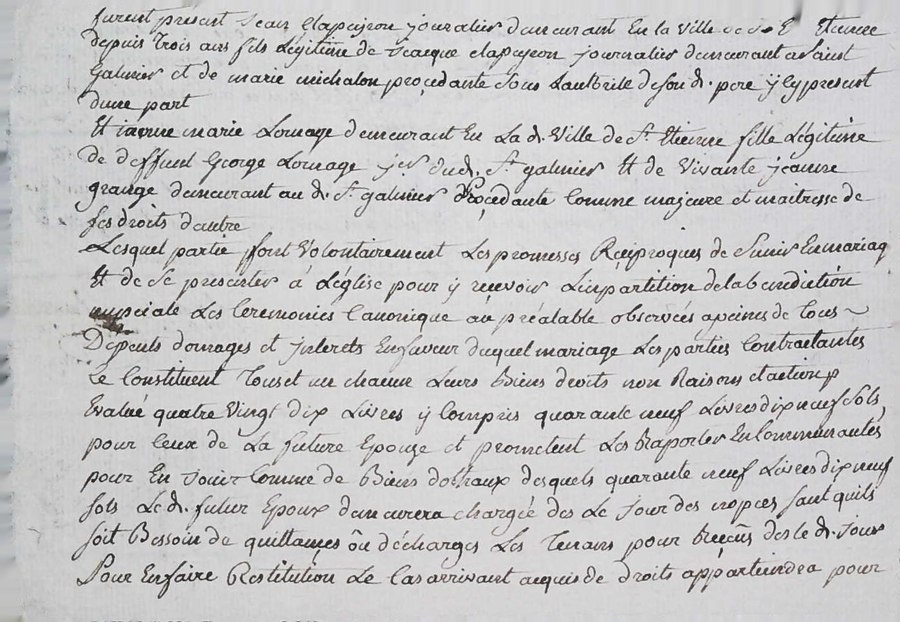 furent present Jean Clapeyron journalier demeurant En la Ville de St E Etienne
depuis trois ans fils Légitime de Jacque clapeyron journalier demeurant a Saint
Galmier et de marie michalon proçedante sous Lautorite deson d. pere ÿ Cy present
dune part
Et jeanne marie Lornage demeurant En La d. Ville de St. Etienne fille Légitime
de deffunt George Lornage jer. dud. St. galmier Et de Vivante jéanne
grange demeurant au d. St. galmier proçedante Comme majeure et maitresse de
ses droits dautre
Lesquel partie ffont Volontairement Les promesses Réciproques de Sunir Enmariag
Et de Se presenter á Léglise pour ÿ recevoir Linpartition delabenediction
nupciale Les Ceremonies Canonique au préalable observées apeines de tous
Dépents domages et jnterets Enfaveur duquel mariage Les parties Contractantes
Ce Constituent Touset un chacun Leurs Biens droits nom Raisons etactions
Evalué quatre Vingt dix Livres ÿ Compris quarante neuf Livres dixneuf Sols
pour Ceux de La future Epouze et promettent Les Raporter En Communautés
pour En jouir Comme de Biens dotraux desquels quarante neuf Livres dix neuf
sols Led. futur Epoux demeurera chargée des Le jour des nopces sant quils
soit Bessoin de quittances óu décharges Les Tenans pour Reçûs desle d. jour
Pour Enfaire Restitution Le Cas arrivant acquis de droits appartiendra pour